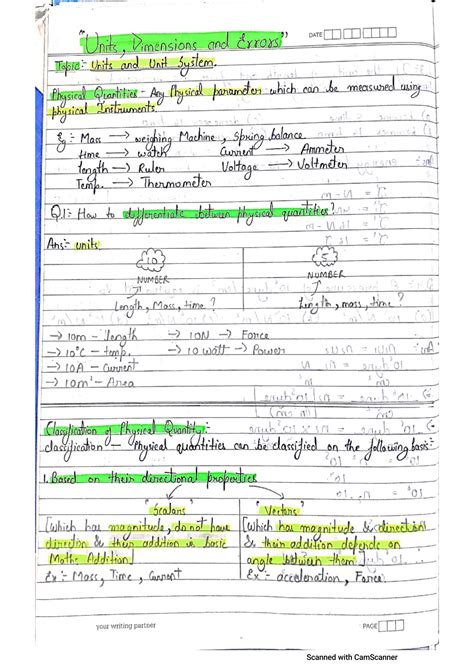 "Units, Dimensions and Errors"
DATE
Topic:- Units and Unit System.
Physical Quantities - Any Physical parameter which can be measured using
physical Instruments.
Eg:- Mass → weighing Machine, Spring balance.
time → watch Current → Ammeter
length → Ruler Voltage → Voltmeter
Temp. → Thermometer
Q1:- How to differentiate between physical quantities?
Ans:- units.
10 5
NUMBER NUMBER
Length, Mass, time? Length, mass, time?
→ 10m - length → 10N → Force
→ 10°C - temp. → 10 watt → Power
→ 10A - Current
→ 10m² - Area
Classification of Physical Quantity:-
classification - Physical quantities can be classified on the following basis:-
1. Based on their directional properties
"Scalars" "Vectors"
[which has magnitude, do not have [which has magnitude & direction
direction & their addition is basic & their addition depends on
Maths Addition] angle between them]
Ex:- Mass, Time, Current Ex:- acceleration, Force.
your writing partner
PAGE
Scanned with CamScanner